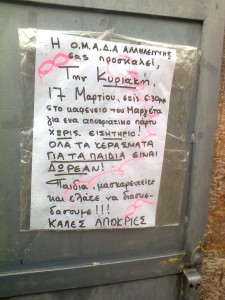 Η Ο.Μ.Α.Δ.Α ΑΛΛΗΛΕΓΓΥΗΣ
σας προσκαλεί,
Την Κυριακή,
17 Μαρτίου, στις 6:30μμ
στο καφενείο του Μαργέτα
για ένα αποκριάτικο πάρτυ
ΧΩΡΙΣ ΕΙΣΗΤΗΡΙΟ!
ΟΛΑ ΤΑ ΚΕΡΑΣΜΑΤΑ
ΓΙΑ ΤΑ ΠΑΙΔΙΑ ΕΙΝΑΙ
ΔΩΡΕΑΝ!
Παιδιά, μασκαρευτείτε
και ελάτε να διασκε-
δάσουμε!!!
ΚΑΛΕΣ ΑΠΟΚΡΙΕΣ